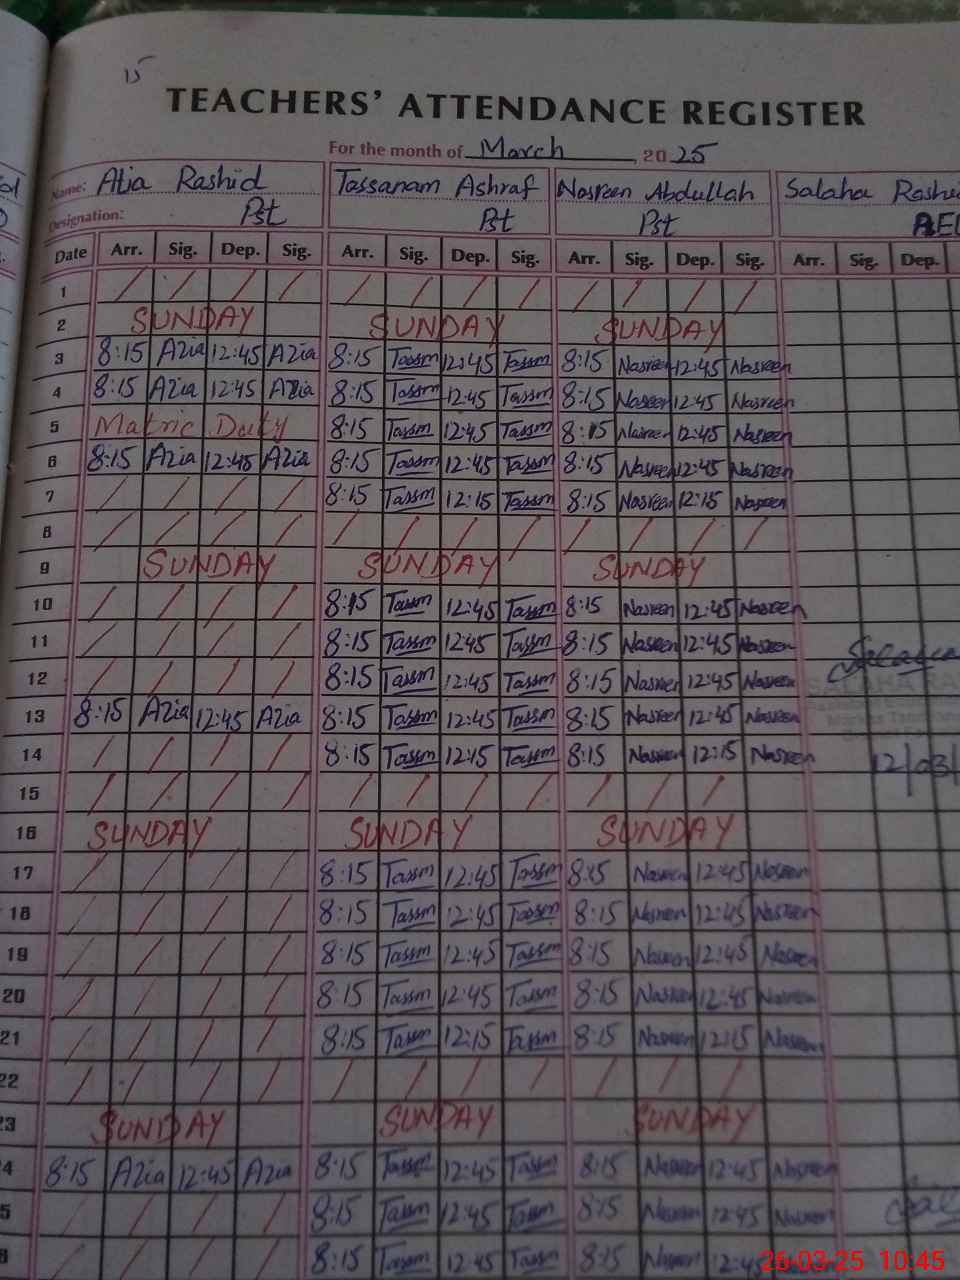 15
TEACHERS' ATTENDANCE REGISTER
For the month of March, 2025
Name: Atia Rashid Tassanam Ashraf Nasreen Abdullah Salaha
Designation: Pst Pst Pst
Date Arr. Sig. Dep. Sig. Arr. Sig. Dep. Sig. Arr. Sig. Dep. Sig. Arr. Sig. Dep.
1 / / / / / / / / / / / /
2 SUNDAY SUNDAY SUNDAY
3 8:15 Azia 12:45 Azia 8:15 Tassm 12:45 Tassm 8:15 Nasreen 12:45 Nasreen
4 8:15 Azia 12:45 Azia 8:15 Tassm 12:45 Tassm 8:15 Nasreen 12:45 Nasreen
5 Matric Duty 8:15 Tassm 12:45 Tassm 8:15 Nasreen 12:45 Nasreen
6 8:15 Azia 12:45 Azia 8:15 Tassm 12:45 Tassm 8:15 Nasreen 12:45 Nasreen
7 / / / / 8:15 Tassm 12:15 Tassm 8:15 Nasreen 12:15 Nasreen
8 / / / / / / / / / / / /
9 SUNDAY SUNDAY SUNDAY
10 / / / / 8:15 Tassm 12:45 Tassm 8:15 Nasreen 12:45 Nasreen
11 / / / / 8:15 Tassm 12:45 Tassm 8:15 Nasreen 12:45 Nasreen
12 / / / / 8:15 Tassm 12:45 Tassm 8:15 Nasreen 12:45 Nasreen
13 8:15 Azia 12:45 Azia 8:15 Tassm 12:45 Tassm 8:15 Nasreen 12:45 Nasreen
14 / / / / 8:15 Tassm 12:15 Tassm 8:15 Nasreen 12:15 Nasreen 12/03/
15 / / / / / / / / / / /
16 SUNDAY SUNDAY SUNDAY
17 / / / / 8:15 Tassm 12:45 Tassm 8:15 Nasreen 12:45 Nasreen
18 / / / / 8:15 Tassm 12:45 Tassm 8:15 Nasreen 12:45 Nasreen
19 / / / / 8:15 Tassm 12:45 Tassm 8:15 Nasreen 12:45 Nasreen
20 / / / / 8:15 Tassm 12:45 Tassm 8:15 Nasreen 12:45 Nasreen
21 / / / / 8:15 Tassm 12:15 Tassm 8:15 Nasreen 12:15 Nasreen
22 / / / / / / / / / / /
23 SUNDAY SUNDAY SUNDAY
4 8:15 Azia 12:45 Azia 8:15 Tassm 12:45 Tassm 8:15 Nasreen 12:45 Nasreen
5 / / / / 8:15 Tassm 12:45 Tassm 8:15 Nasreen 12:45 Nasreen
/ / / / 8:15 Tassm 12:45 Tassm 8:15 Nasreen
26-03-25 10:45